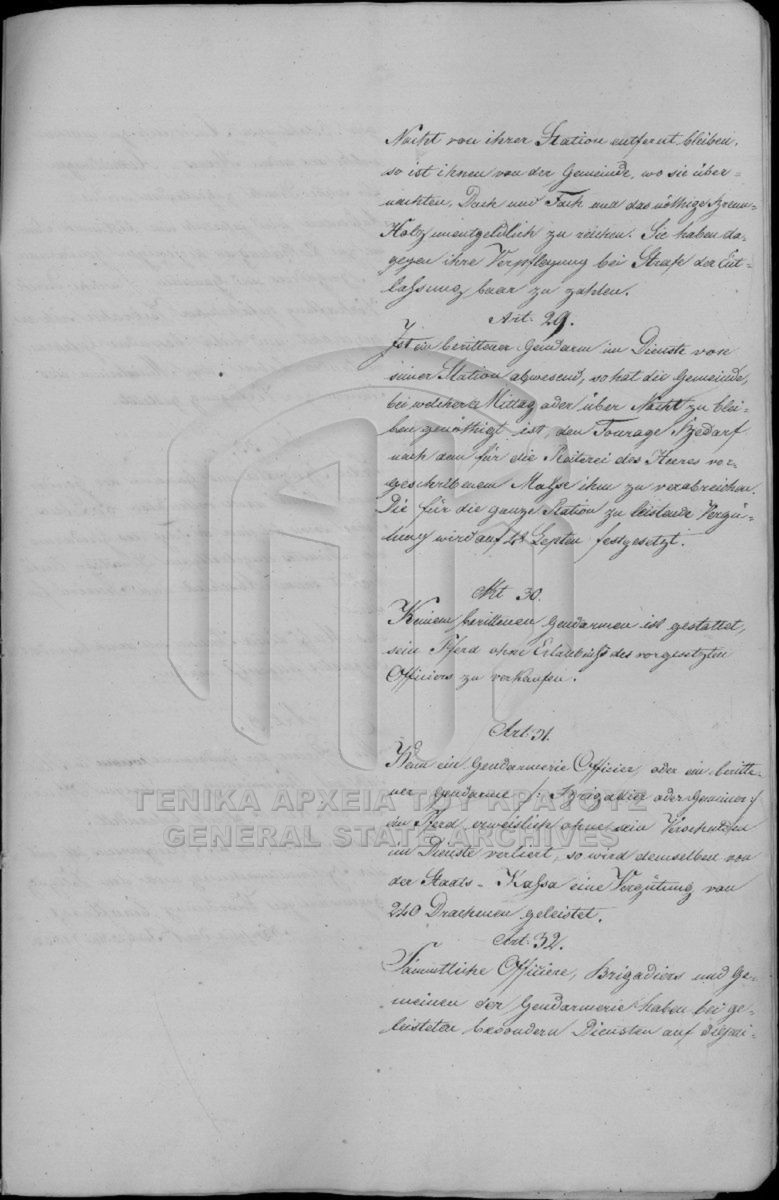 Nacht von ihrer Station entfernt bleiben,
so ist ihnen von der Gemeinde, wo sie über-
nachten, Dach und Fach und das nöthige Brenn-
Holz unentgeldlich zu reichen. Sie haben da-
gegen ihre Verpflegung bei Strafe der Ent-
lassung baar zu zahlen.
Art. 29.
Ist ein berittener Gendarm im Dienste von
seiner Station abwesend, so hat die Gemeinde,
bei welcher er Mittag oder über Nacht zu blei-
ben genöthigt ist, den Fourage Bedarf
nach dem für die Reiterei des Heeres vor-
geschriebenem Maße ihm zu verabreichen.
Die für die ganze Station zu leistende Vergü-
tung wird auf Lepten festgesetzt.
Art 30.
Keinem berittenen Gendarmen ist gestattet,
sein Pferd ohne Erlaubniß des vorgesetzten
Officiers zu verkaufen.
Art. 31.
Wenn ein Gendarmerie Officier, oder ein beritte-
ner Gendarme /: Brigadier oder Gemeiner :/
ein Pferd erweislich ohne sein Verschulden
im Dienste verliert, so wird demselben von
der Staats-Kassa eine Vergütung von
240 Drachmen geleistet.
Art. 32.
Sämmtliche Officiere, Brigadiers und Ge-
meinen der Gendarmerie haben bei ge-
leisteten besondern Diensten auf
ΓΕΝΙΚΑ ΑΡΧΕΙΑ ΤΟΥ ΚΡΑΤΟΥΣ
GENERAL STATE ARCHIVES